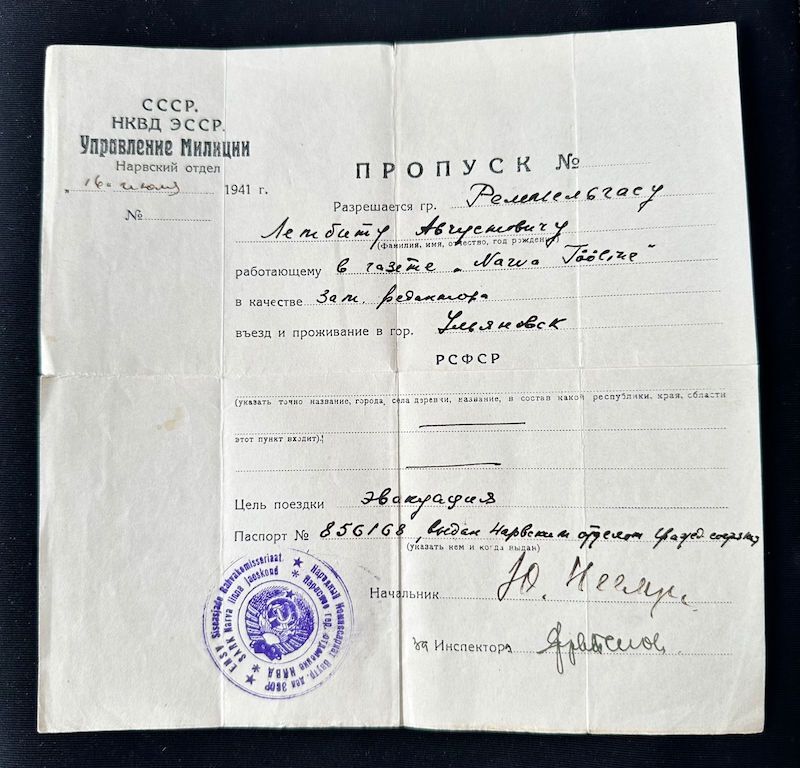 СССР.
НКВД ЭССР.
Управление Милиции
Нарвский отдел
„16“ июля 1941 г.
№
ПРОПУСК №
Разрешается гр. Реммельгасу
Лембиту Августовичу
(Фамилия, имя, отчество, год рождения)
работающему в газете „Narva Tööline“
в качестве Зам. редактора
въезд и проживание в гор. Ульяновск
РСФСР
(указать точно название, города, села деревни, название, в состав какой республики, края, области
этот пункт входит).
Цель поездки эвакуация
Паспорт № 856168, выдан Нарвским отделом
(указать кем и когда выдан)
Начальник Ю.
за Инспектора
ENSV Siseasjade Rahvakomissariaat.
SARK Narva linna jaoskond
Народный Комиссариат Внутр. дел ЭССР
Нарвское гор. отделение НКВД